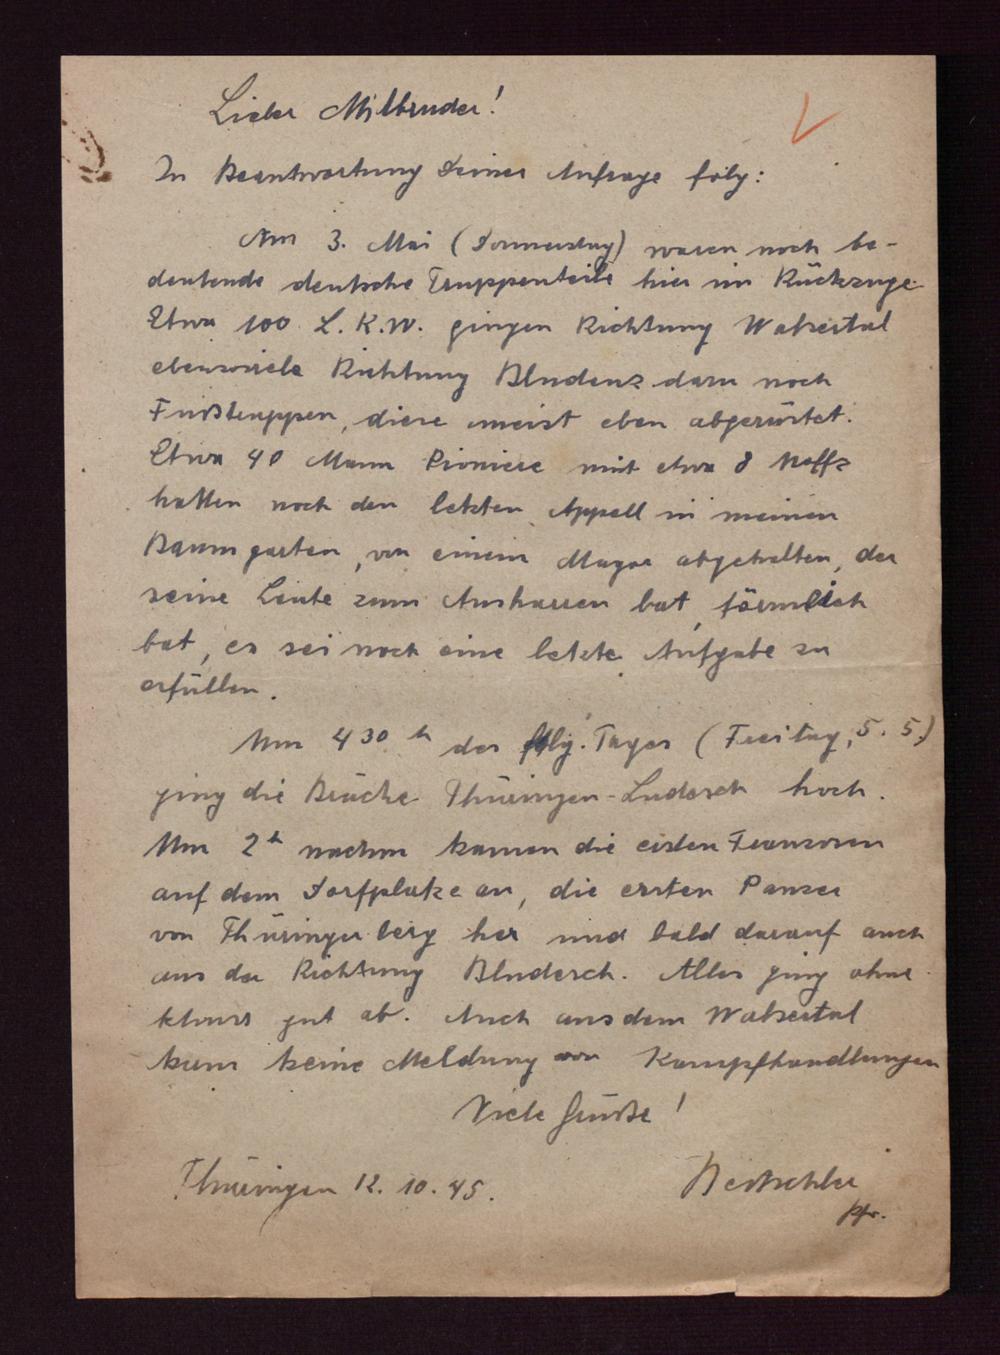 Lieber Mitbruder!
In Beantwortung Deiner Anfrage folg:
Am 3. Mai (Donnerstag) waren noch be-
deutende deutsche Truppenteile hier im Rückzuge
Etwa 100 L.K.W. gingen Richtung Walsertal
ebensoviele Richtung Bludenz dazu noch
Fußtruppen, diese meist eben abgerüstet.
Etwa 40 Mann Pioniere mit etwa 8
hatten noch den letzten Appell in meinen
Baumgarten, von einem Mayor abgehalten, der
seine Leute zum Ausharren bat, förmlich
bat, es sei noch eine letzte Aufgabe zu
erfüllen.
Um 4 30 h des folg. Tages (Freitag, 5. 5.)
ging die Brücke Thüringen-Ludesch hoch.
Um 2 h nachm kamen die ersten Franzosen
auf dem Dorfplatze an, die ersten Panzer
von Thüringerberg her und bald darauf auch
aus der Richtung Bludesch. Alles ging ohne
gut ab. Auch aus dem Walsertal
kam keine Meldung von Kampfhandlungen
Viele Grüße!
Thüringen 12. 10. 45. Bertschler
Pfr.